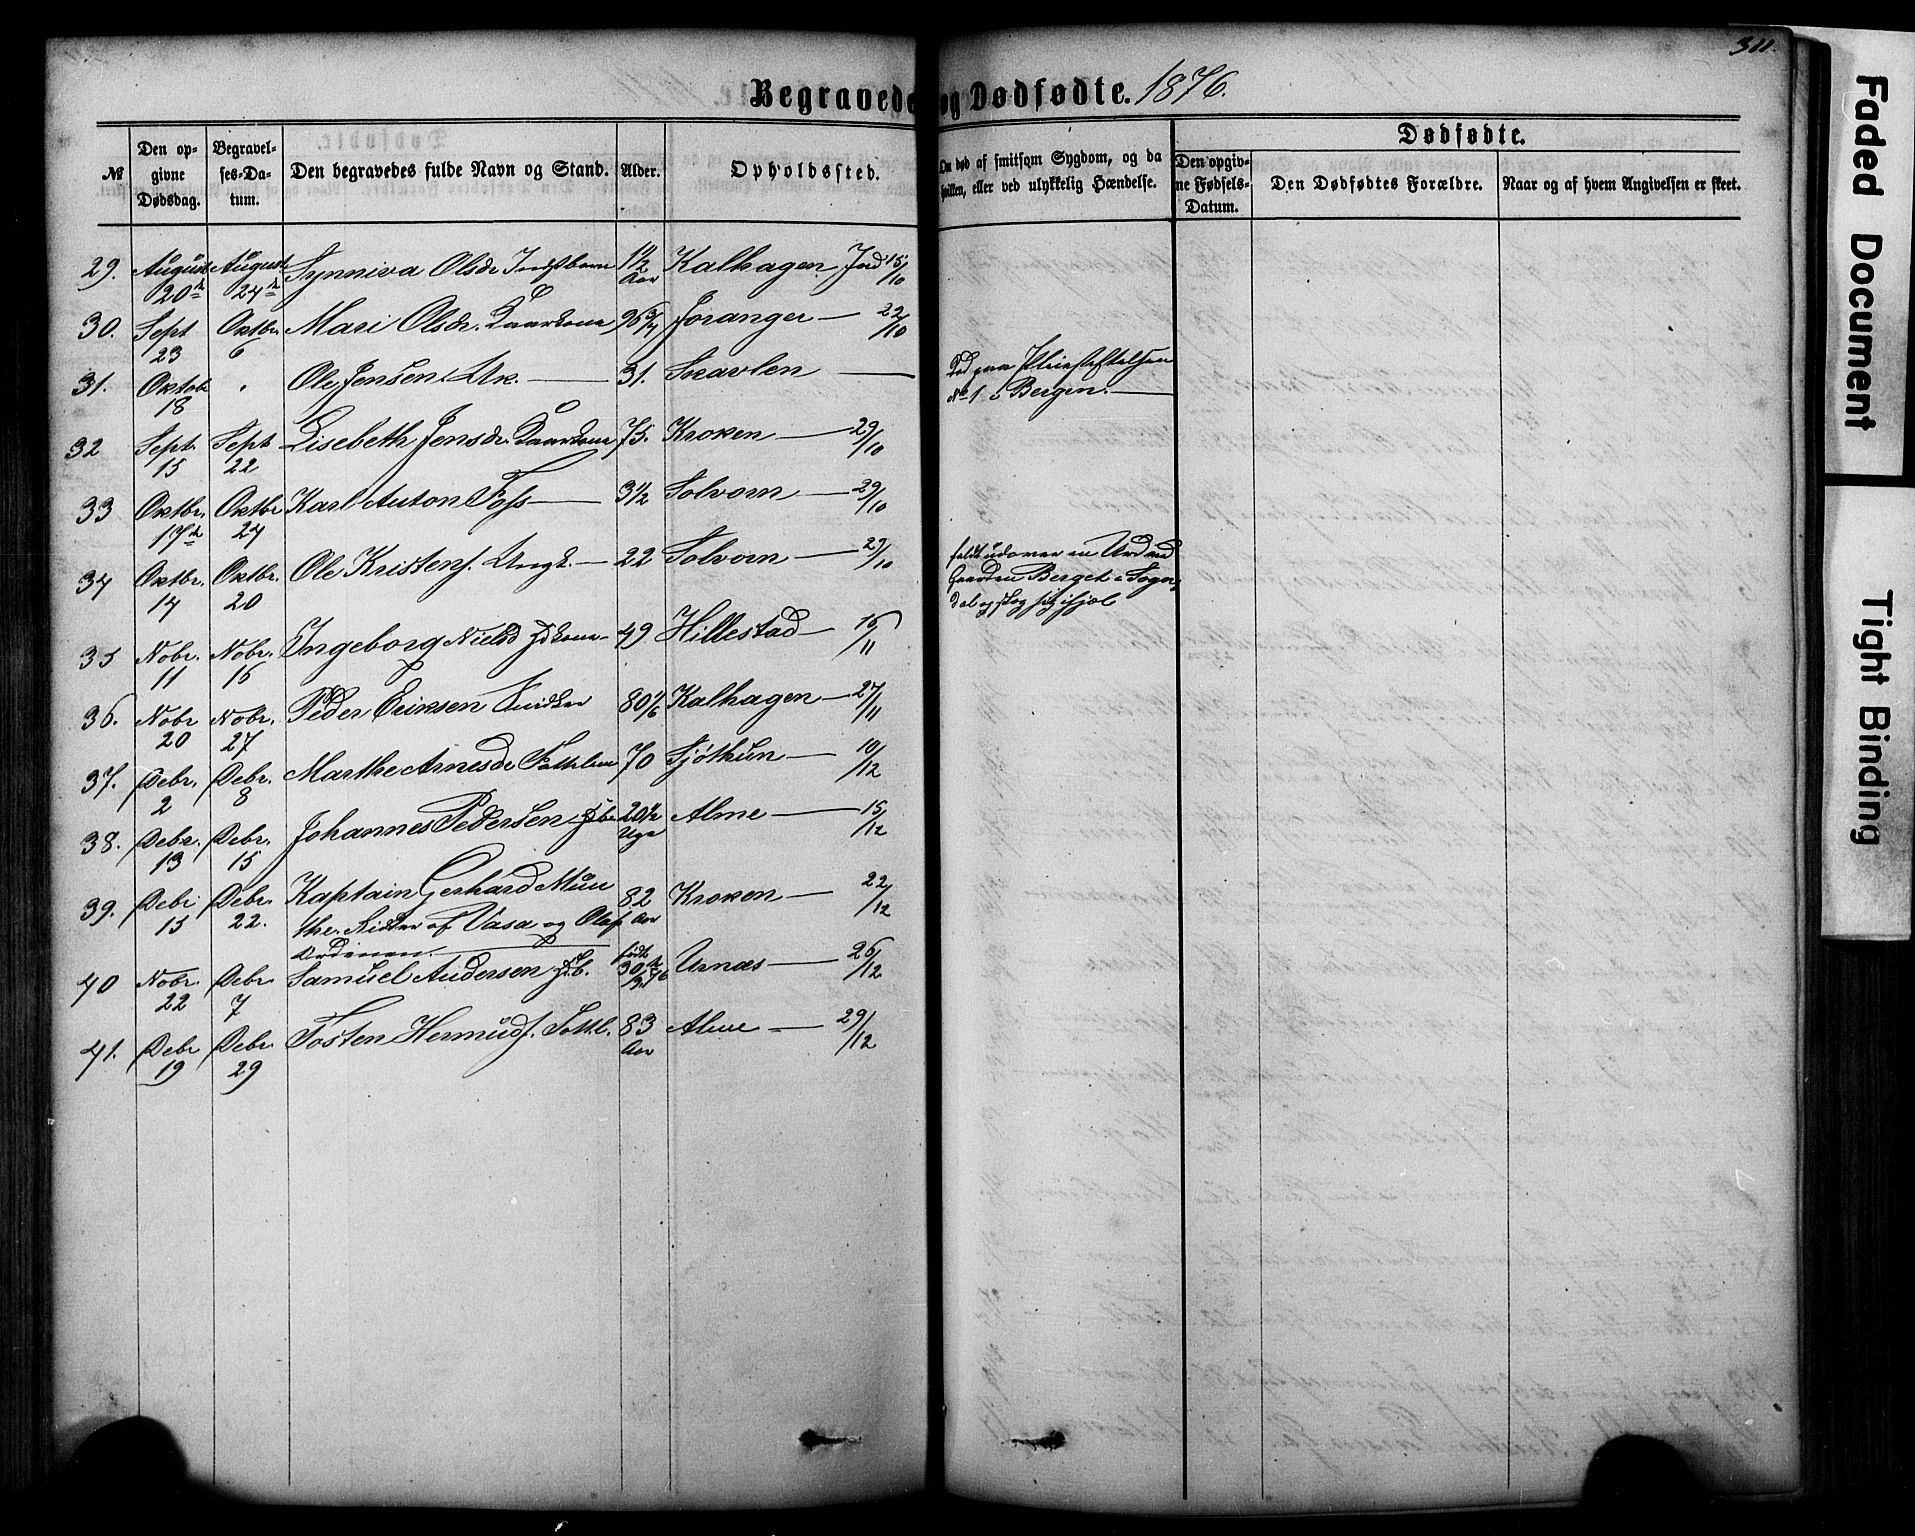 311.
Begravede og Dødfødte. 1876.
№ | Den opgivne Dødsdag. | Begravelses-Datum. | Den begravedes fulde Navn og Stand. | Alder. | Opholdssted. | Om død af smitsom Sygdom, og da hvilken, eller ved ulykkelig Hændelse.
Dødfødte.
Den opgivne Fødsels-Datum. | Den Dødfødtes Forældre. | Naar og af hvem Angivelsen er skeet.
29. August 20de August 24de Synniva Olsdr 1½ Aar Kalhagen Jord 15/10
30. Sept 23 Oktbr. 6 Mari Olsdr. Kaarkone 96 Joranger — 22/10
31. Oktobr 18 Ole Jensen Uk. — 31. Skavlen — Død paa Pleiestiftelsen No 1 i Bergen. —
32 Sept. 15 Sept 22 Lisebeth Jensdr Kaarkone 75. Kroken — 29/10
33 Oktbr. 17de Oktbr 24 Karl Anton Foss — 3½ Solvorn — 29/10
34 Oktbr. 14 Oktbr. 20 Ole Kristens. Ungk. — 22 Solvorn — 29/10 faldt udover en Urd ved Gaarden Berget i Sogndal og slog sig ihjel
35 Nobr. 11 Nobr. 16 Ingeborg Nielsd — 49 Hillestad — 16/11
36. Nobr 20 Nobr. 27 Peder Eriksen 80 1/6 Kalhagen — 27/11
37. Debr. 2 Debr. 8 Marthe Arnesdr 70 Sjøthun — 10/12
38. Debr. 13 Debr. 15 Johannes Pedersen 20½ Uge Alme — 15/12
39. Debr 15 Debr. 22. Kaptain Gerhard Munthe. Ridder af Vasa og Olaf Ordenen. — 82 Aar Kroken — 22/12
40 Nobr. 22 Debr. 7 Samuel Andersen født 30te Urnæs — 26/12
41. Debr 19 Debr. 29 Tosten Hermuds. 83 Aar Alme — 29/12
Faded Document
Tight Binding